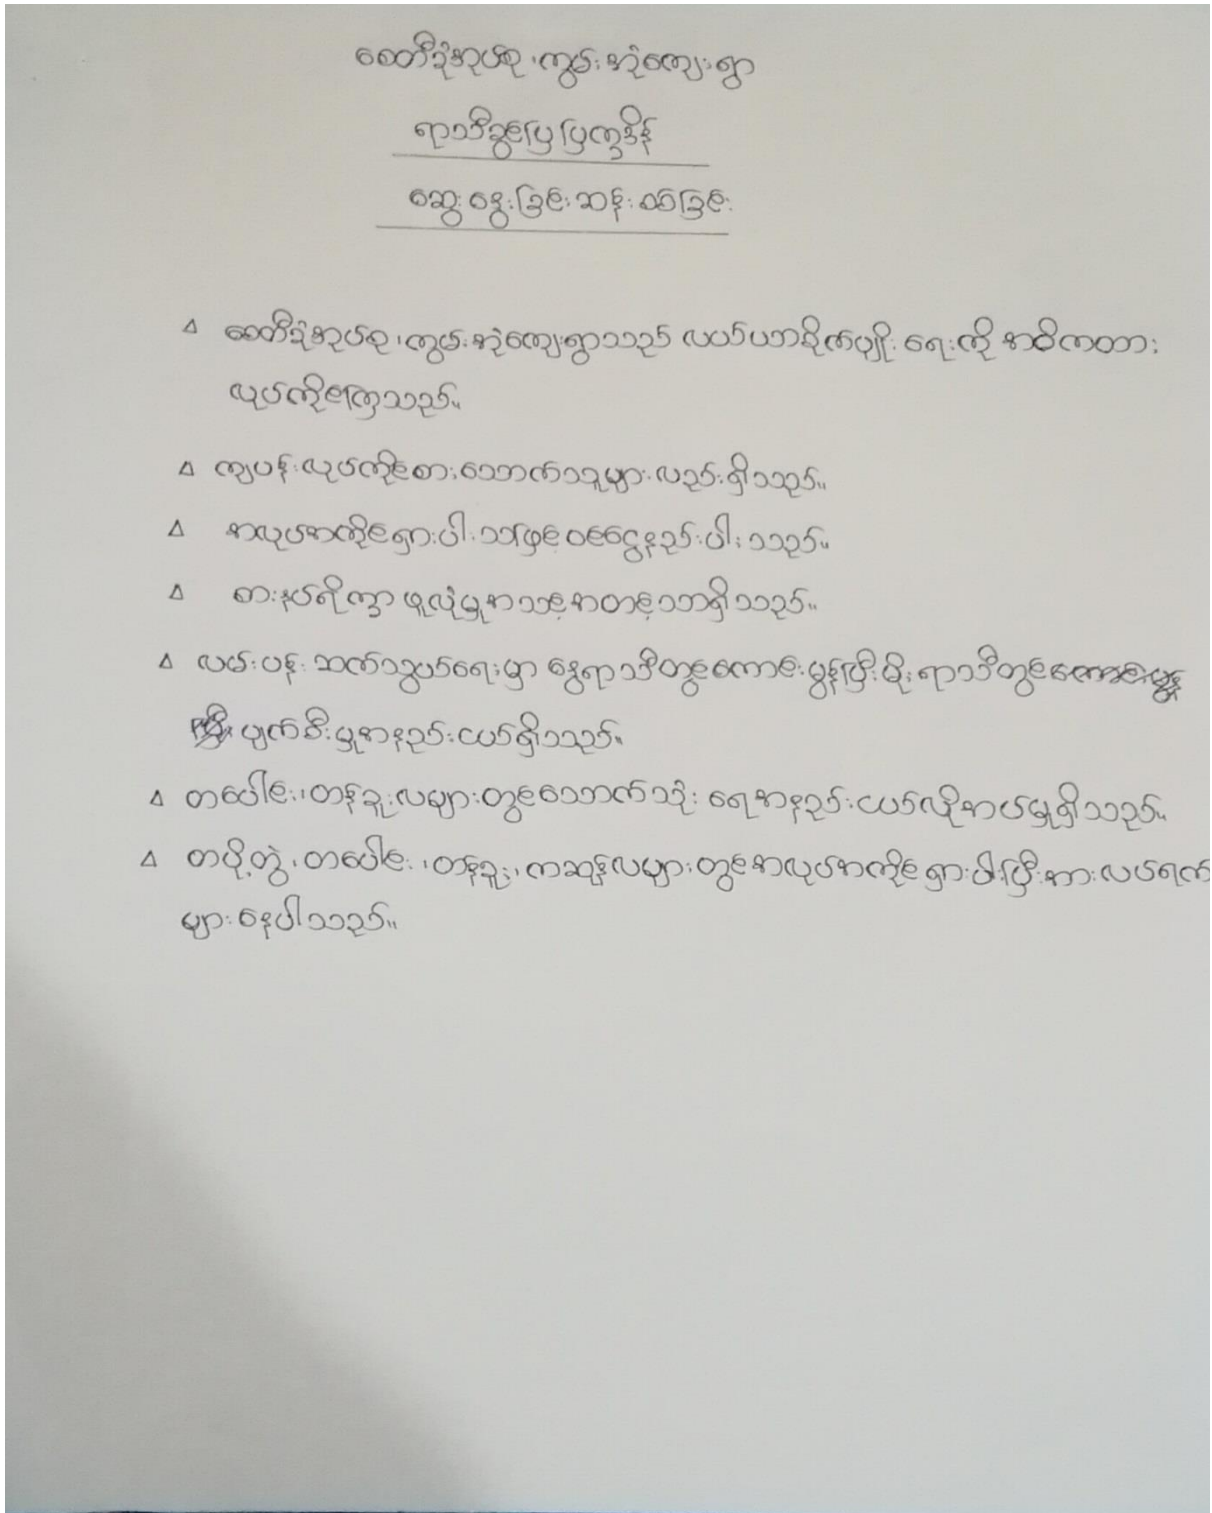 စေတီဒုံအုပ်စု ၊ ကွမ်းအုံကျေးရွာ
ရာသီခွင်ပြ ပြက္ခဒိန်
ဆွေးနွေးခြင်းဆန်းစစ်ခြင်း
စေတီဒုံအုပ်စု ၊ ကွမ်းအုံကျေးရွာသည် လယ်ယာစိုက်ပျိုးရေးကို အဓိကထား
လုပ်ကိုင်ကြသည်။
ကျပန်းလုပ်ကိုင်စားသောက်သူများလည်းရှိသည်။
အလုပ်အကိုင်ရှားပါးသဖြင့် ဝင်ငွေနည်းပါးသည်။
စားနပ်ရိက္ခာ ဖူလုံမှုအသင့်အတင့်သာရှိသည်။
လမ်းပန်းဆက်သွယ်ရေးမှာ နွေရာသီတွင်ကောင်းမွန်ပြီး မိုးရာသီတွင်
ပျက်စီးမှုအနည်းငယ်ရှိသည်။
တပေါင်း၊တန်ခူးလများတွင်သောက်သုံးရေအနည်းငယ်လိုအပ်မှုရှိသည်။
တပို့တွဲ ၊ တပေါင်း ၊တန်ခူး၊ ကဆုန်လများတွင်အလုပ်အကိုင်ရှားပါးပြီးအားလပ်ရက်
များနေပါသည်။